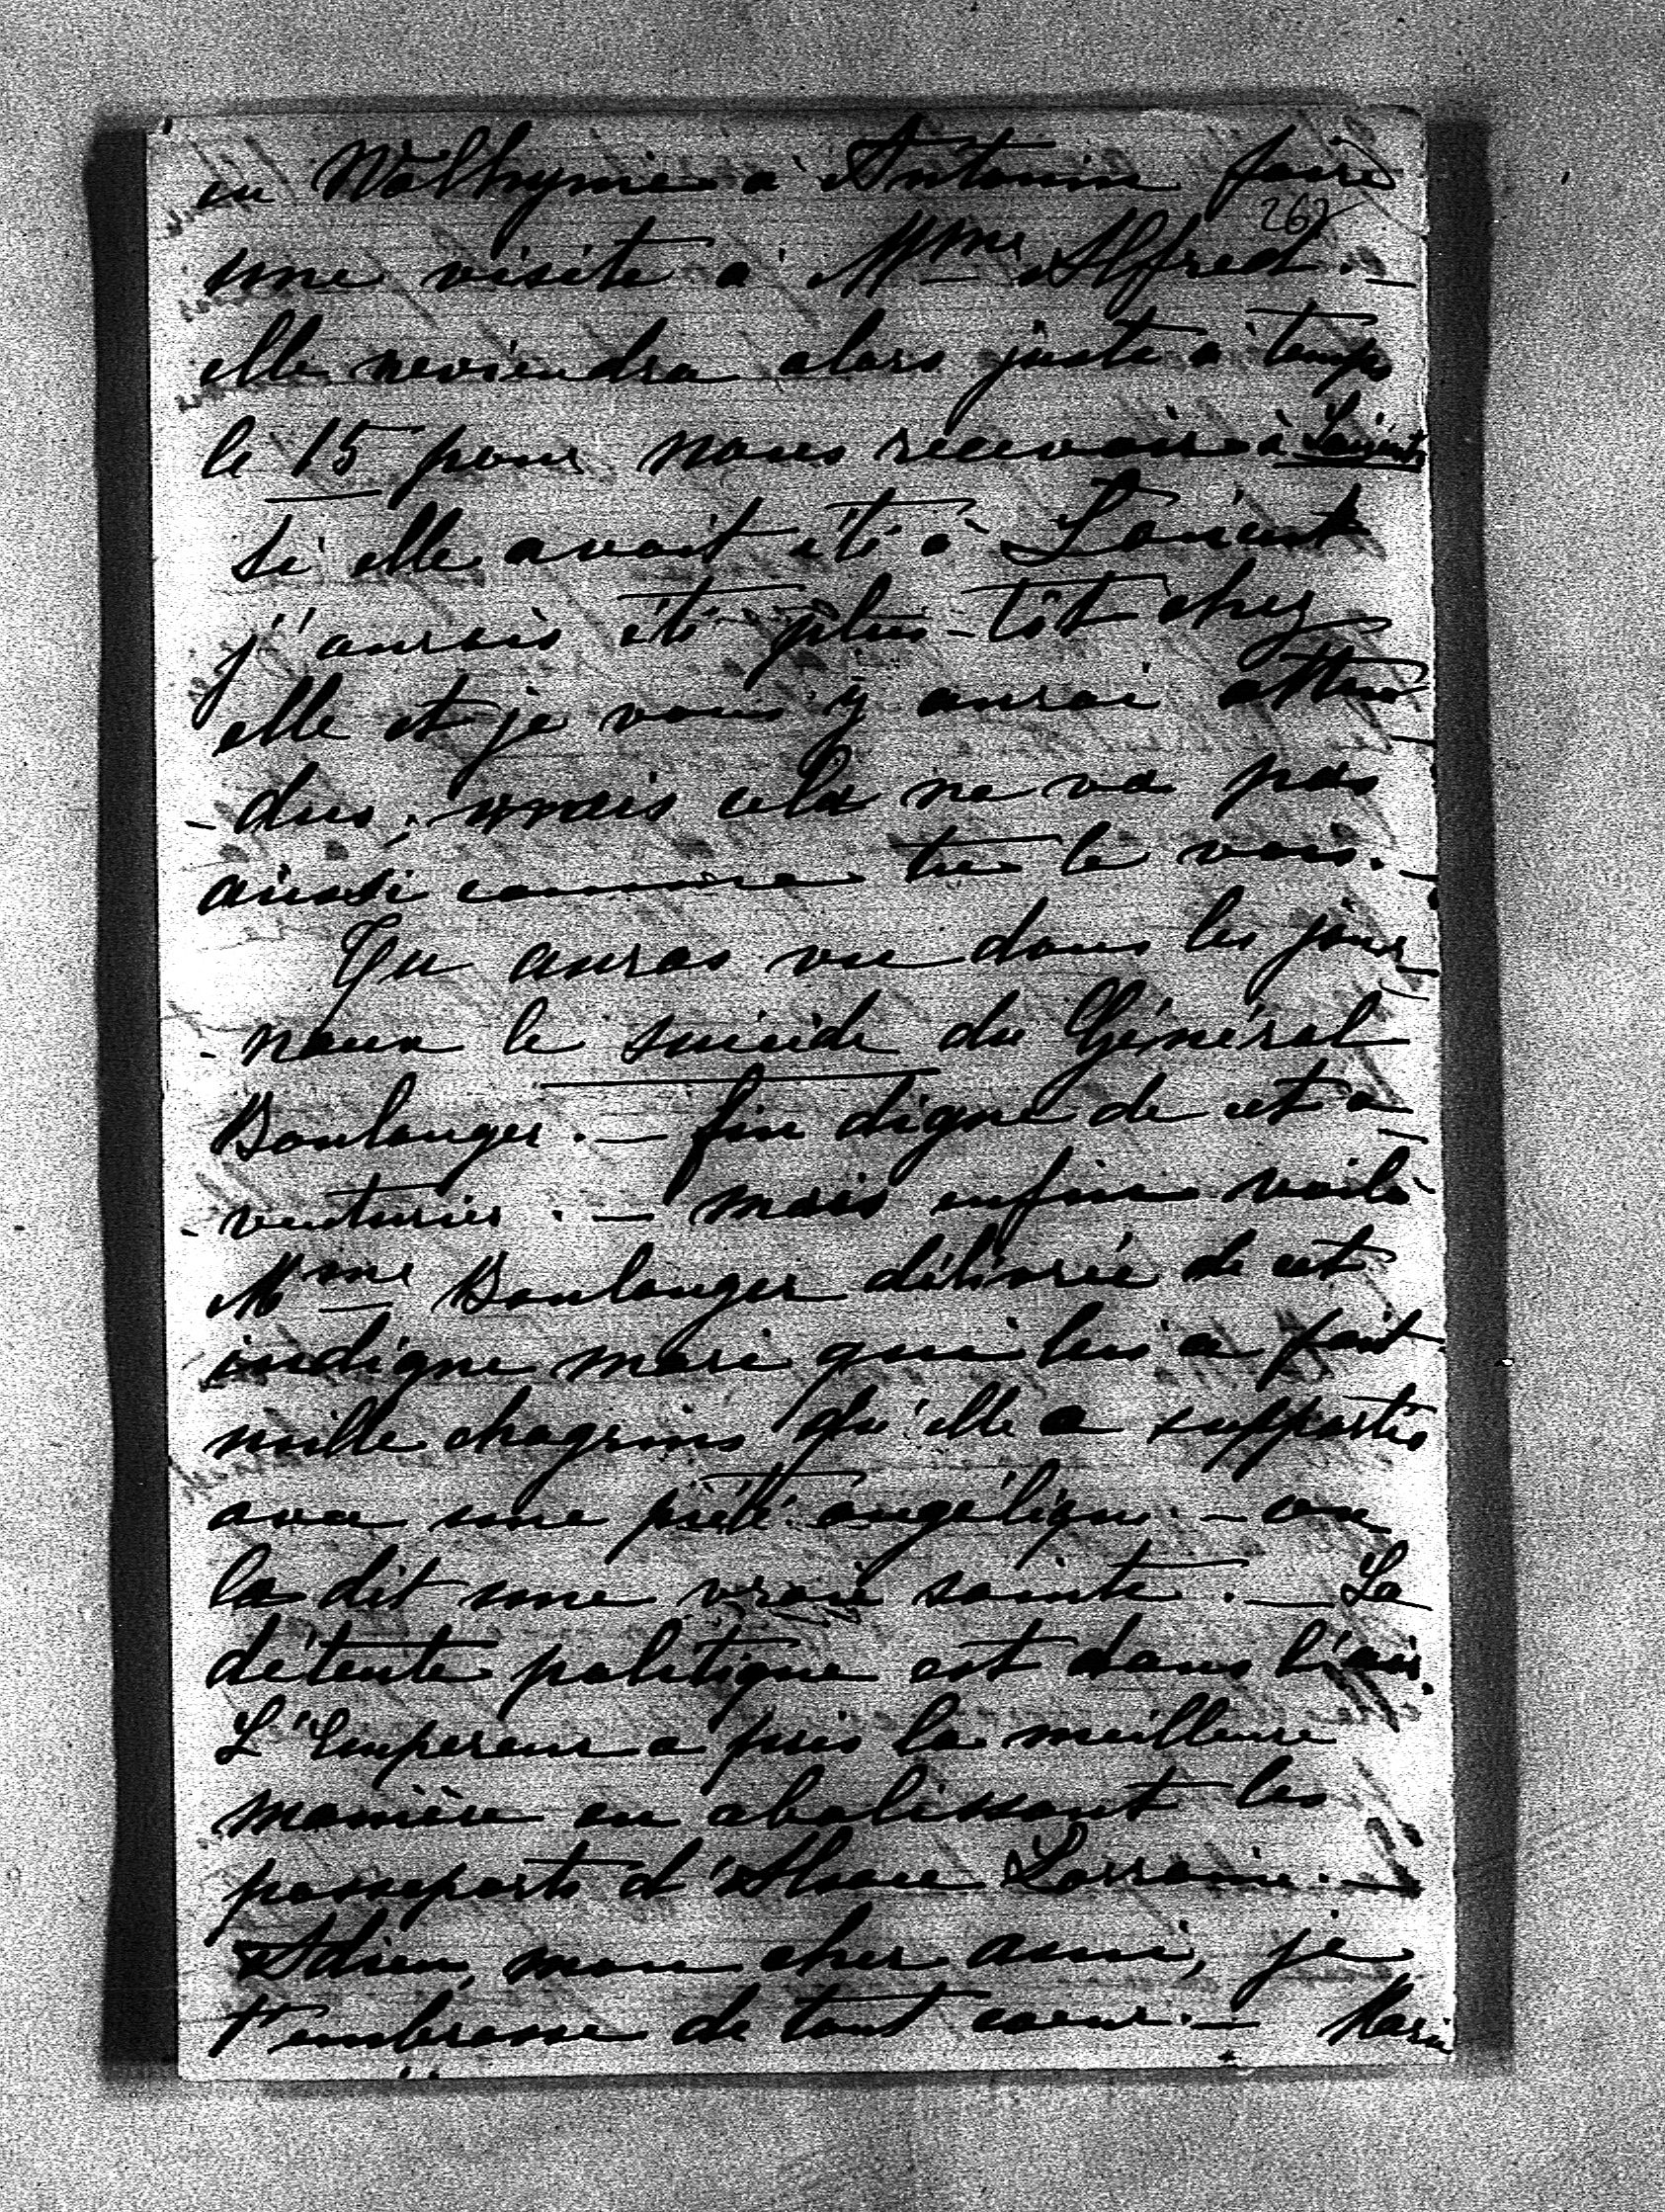 en Wolhynie à Antonin faire
262
une visite à Mme Alfred. –
elle reviendra alors juste à temps
le 15 pour nous recevoir à Lancut
si elle avait été à Lancut
j'aurais été plus-tôt chez
elle et je vous y aurai atten-
-dus; mais cela ne va pas
ainsi comme tu le vois. –
Tu auras vu dans les jour-
-naux le suicide du Général
Boulanger. – fin digne de cet a-
-venturier. – mais enfin voilà
Mme Boulanger délivrée de cet
indigne mari qui lui a fait
mille chagrins qu'elle a supportés
avec une piété angélique. – on
la dit une vraie sainte. – La
détente politique est dans l'air.
L'Empereur a pris la meilleure
manière en abolissant les
passeports d'Alsace Lorraine. –
Adieu, mon cher ami, je
t'embrasse de tout coeur. – Marie